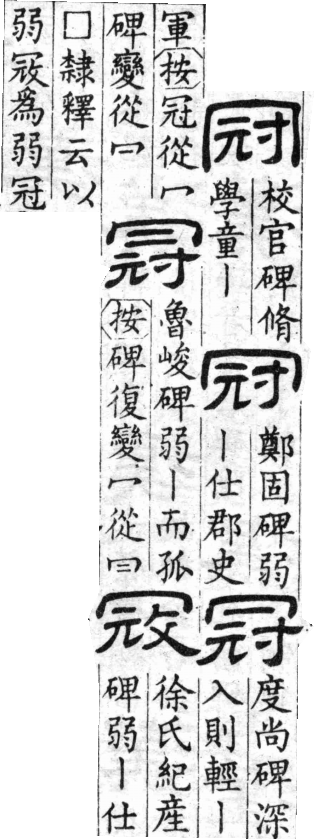 冠
校官碑脩
學童丨
冠
鄭固碑弱
丨仕郡史
冠
度尚碑深
入則輕丨
軍按冠從冖
碑變從𠔼
冠
魯峻碑弱丨而孤
按碑復變冖從冃
冦
徐氏紀産
碑弱丨仕
□隸釋云以
弱冦爲弱冠